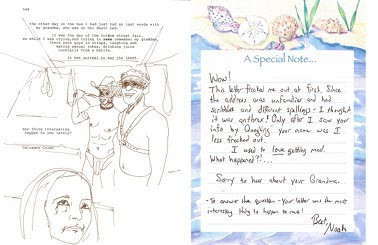 the other day on the bus i had lost had my last words with
my grandma, who was on her death bed.
it was the day of the folsom street fair.
so while i was crying, and trying to remember my grandma,
there were guys in straps, laughing and
making sexual jokes, drinking iced
cocktails from a bottle.
it was surreal to say the least.
any thing interesting
happen to you lately?
A Special Note...
Wow!
This letter freaked me out at first. Since
the address was unfamiliar and had
scribbles and different spellings - I thought
it was anthrax! Only after I saw your
info by Googling your name was I
less freaked out.
I used to love getting mail.
What happened?!...
Sorry to hear about your Grandma.
- To answer the question - Your letter was the most
interesting thing to happen to me!
Best,
Noah